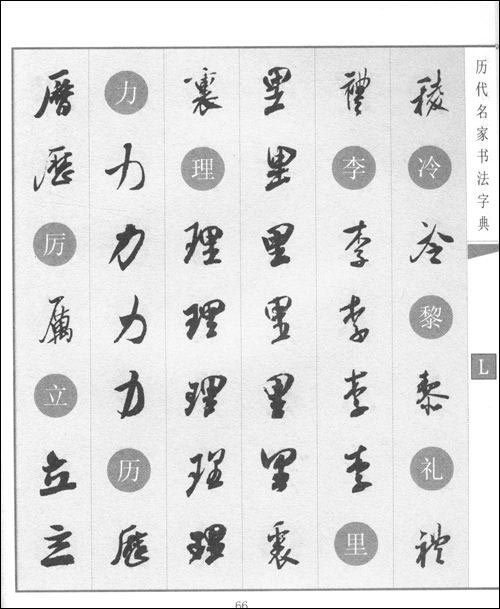 历代名家书法字典
L
稜冷冷黎黎礼禮
禮李李李李李里
里里里里里里裏
裏理理理理理理
力力力力力历歷
曆歷厉厲立立立
66